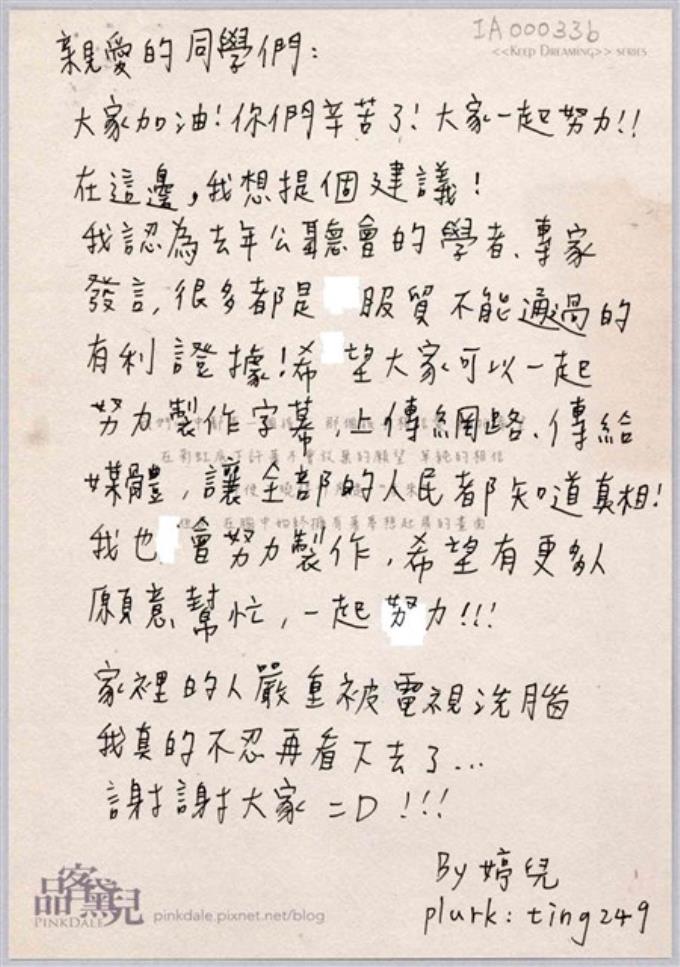 IA00033b
<<KEEP DREAMING>> SERIES
親愛的同學們:
大家加油!你們辛苦了!大家一起努力!!
在這邊,我想提個建議!
我認為去年公聽會的學者、專家
發言,很多都是 服貿不能通過的
有利證據!希望大家可以一起
努力製作字幕,上傳網路、傳給
媒體,讓全部的人民都知道真相!
我也會努力製作,希望有更多人
願意幫忙,一起努力!!!
家裡的人嚴重被電視洗腦
我真的不忍再看下去了...
謝謝大家=D!!!
By 婷兒
plurk: ting249
品客黛兒
PINKDALE
pinkdale.pixnet.net/blog